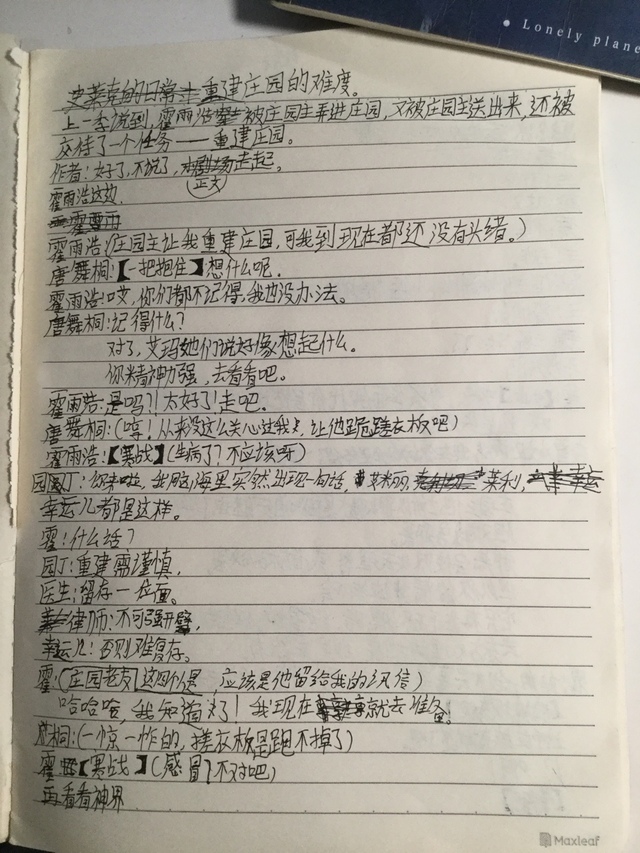 Lonely plane
史莱克的日常+重建庄园的难度。
上一季说到,霍雨浩被庄园主弄进庄园,又被庄园主送出来,还被
交待了一个任务——重建庄园。
作者:好了,不说了,走起。
正文
霍雨浩这边
霍雨浩:(庄园主让我重建庄园,可我到现在都还没有头绪。)
唐舞桐:【一把抱住】想什么呢.
霍雨浩:哎,你们都不记得,我也没办法。
唐舞桐:记得什么?
对了,艾玛她们说好像想起什么。
你精神力强,去看看吧。
霍雨浩:是吗?!太好了!走吧.
唐舞桐:(哼!从来没这么关心过我,让他跪搓衣板吧)
霍雨浩:【寒战】(生病了?不应该呀)
园丁:你来啦,我脑海里突然出现一句话,艾米丽,莱利,幸运
幸运儿都是这样。
霍:什么话?
园丁:重建需谨慎,
医生:留存一位面。
律师:不可强开劈,
幸运儿:否则难复存。
霍:(庄园老友这四个人是,应该是他留给我的讯信)
哈哈哈,我知道了!我现在就去准备!
桐:(一惊一作的,搓衣板是跑不掉了)
霍:【寒战】(感冒?不对吧)
再看看神界
Maxleaf